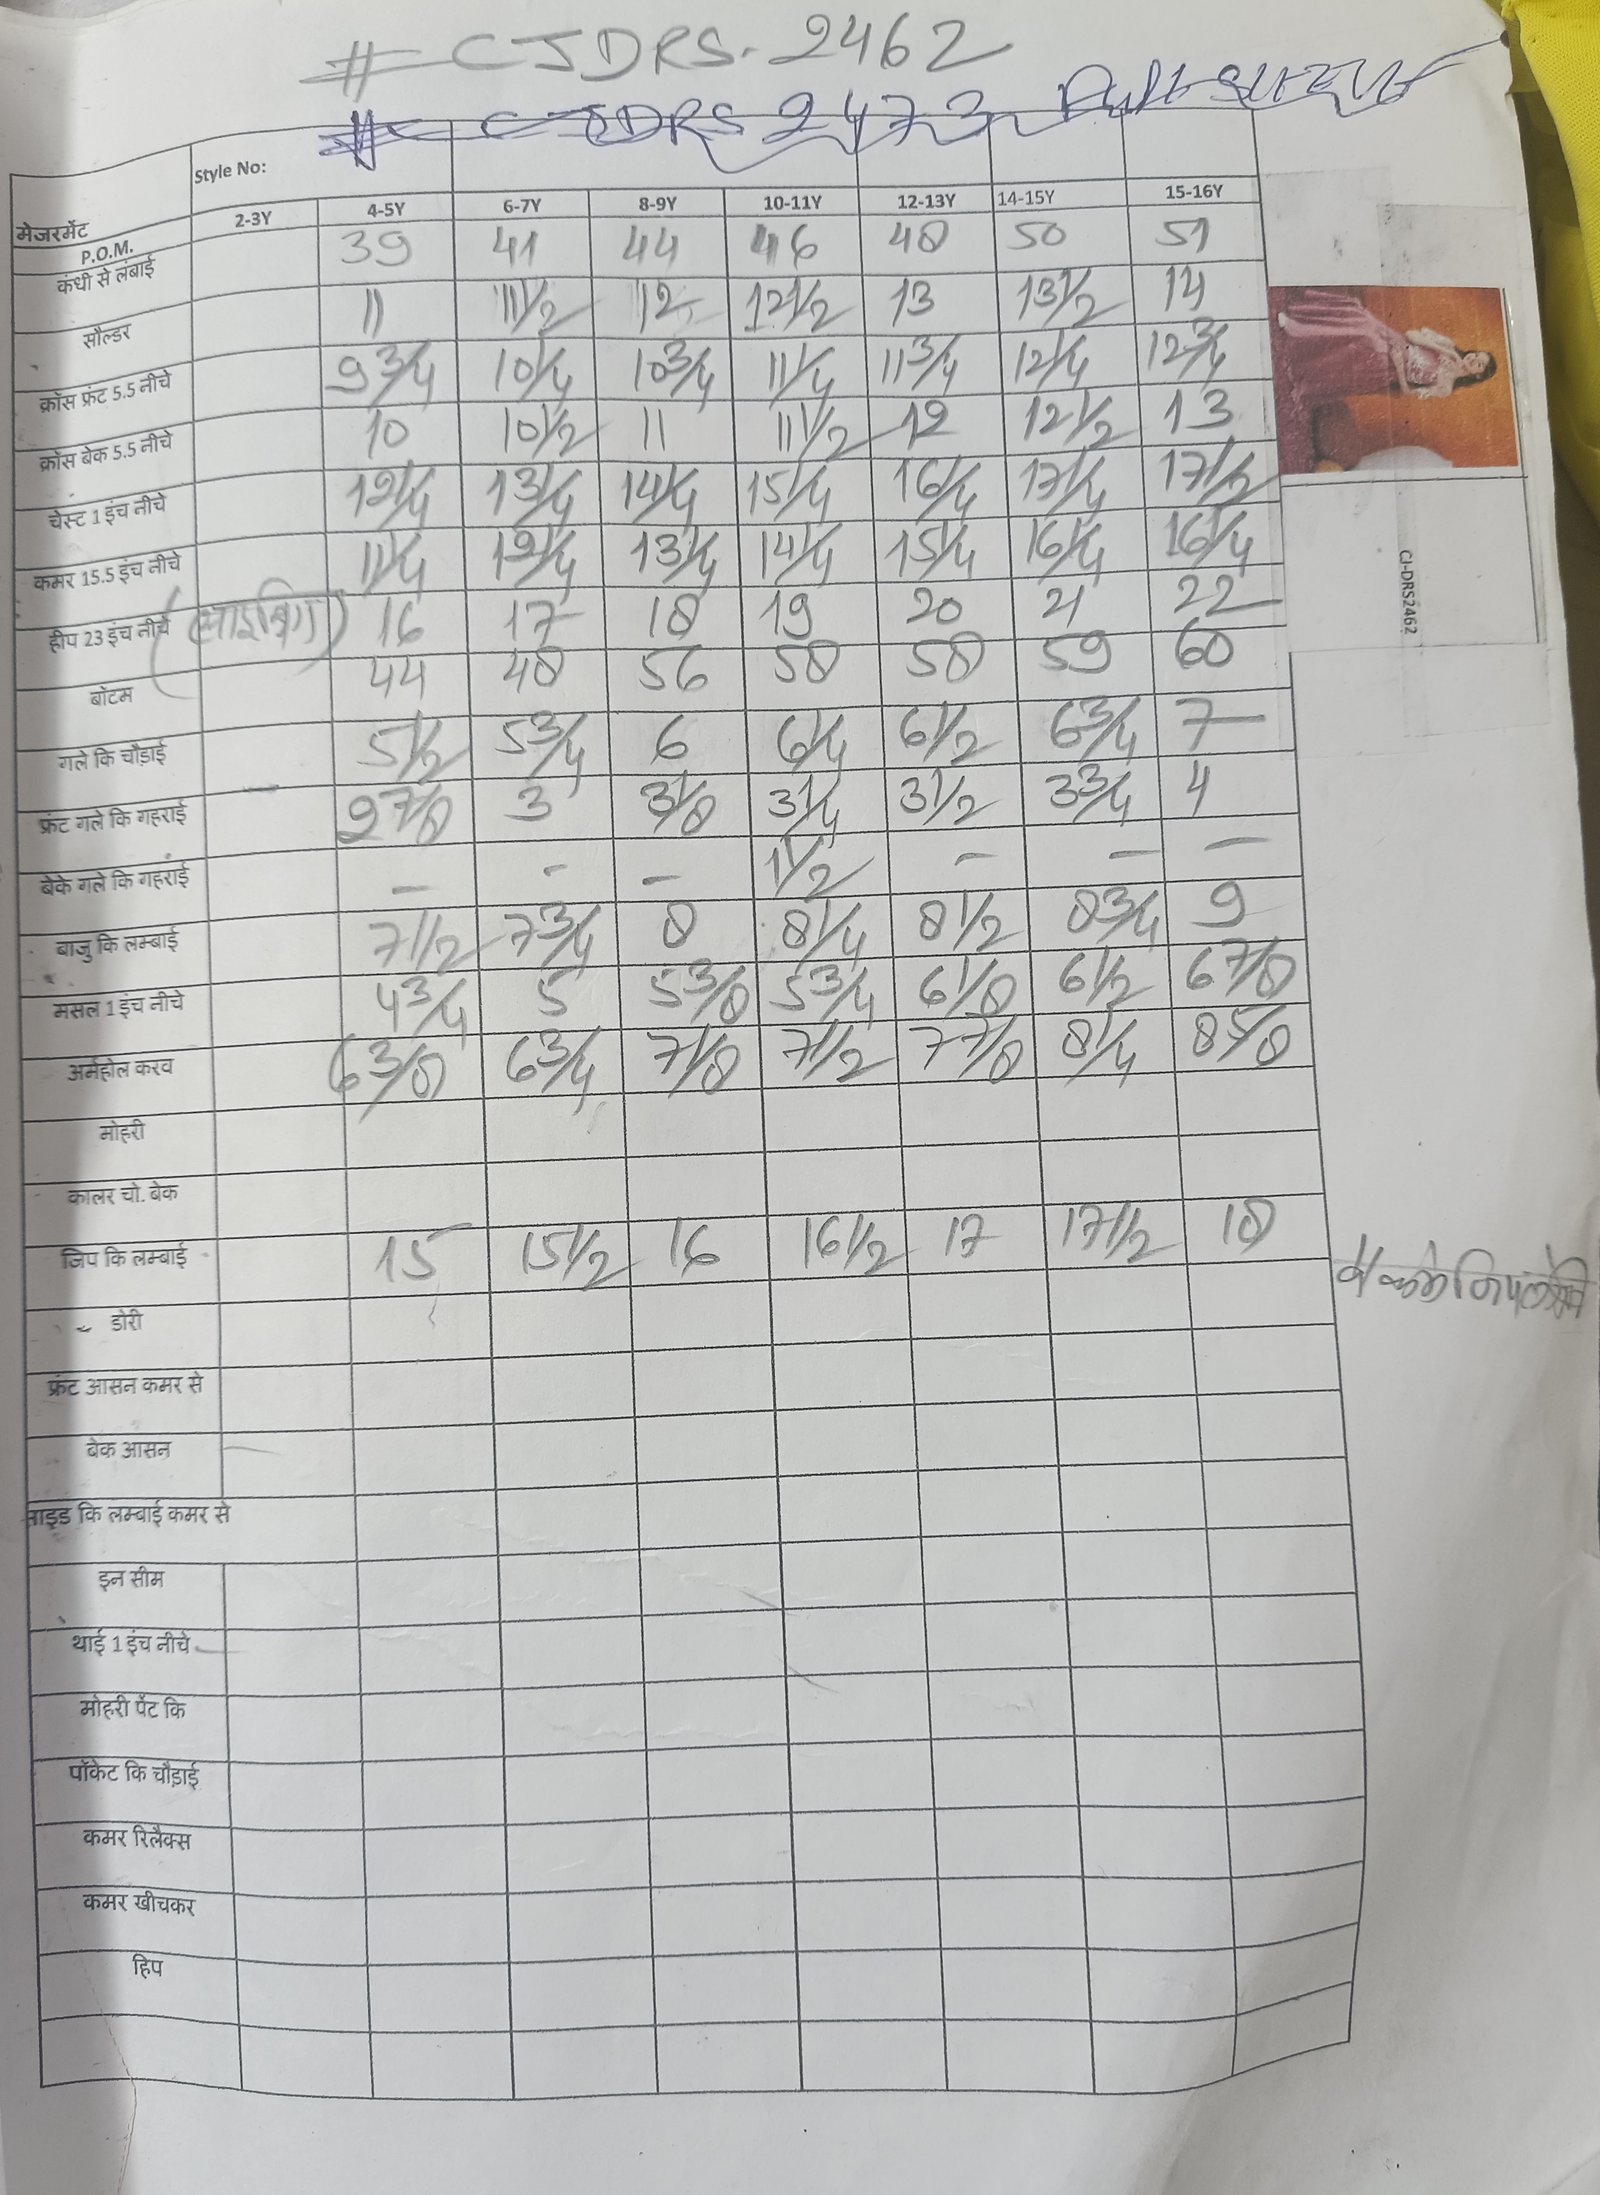 # CJDRS-2462
# CJDRS 2473
Style No:
मेजरमेंट 2-3Y 4-5Y 6-7Y 8-9Y 10-11Y 12-13Y 14-15Y 15-16Y
P.O.M.
कंधी से लंबाई 39 41 44 46 48 50 51
सौल्डर 11 11 1/2 12 12 1/2 13 13 1/2 14
क्रॉस फ्रंट 5.5 नीचे 9 3/4 10 1/4 10 3/4 11 1/4 11 3/4 12 1/4 12 3/4
क्रॉस बेक 5.5 नीचे 10 10 1/2 11 11 1/2 12 12 1/2 13
चेस्ट 1 इंच नीचे 12 1/4 13 1/4 14 1/4 15 1/4 16 1/4 17 1/4 17 1/2
कमर 15.5 इंच नीचे 11 1/4 12 1/4 13 1/4 14 1/4 15 1/4 16 1/4 16 1/4
हीप 23 इंच नीचे 16 17 18 19 20 21 22
बॉटम 44 48 56 58 58 59 60
गले कि चौड़ाई 5 1/2 5 3/4 6 6 1/4 6 1/2 6 3/4 7
फ्रंट गले कि गहराई 2 7/8 3 3 1/8 3 1/4 3 1/2 3 3/4 4
बेके गले कि गहराई - - - 1 1/2 - - -
बाजु कि लम्बाई 7 1/2 7 3/4 8 8 1/4 8 1/2 8 3/4 9
मसल 1 इंच नीचे 4 3/4 5 5 3/8 5 3/4 6 1/8 6 1/2 6 7/8
अर्महोल करव 6 3/8 6 3/4 7 1/8 7 1/2 7 7/8 8 1/4 8 5/8
मोहरी
कालर चो. बेक
जिप कि लम्बाई 15 15 1/2 16 16 1/2 17 17 1/2 18
डोरी
फ्रंट आसन कमर से
बेक आसन
साइड कि लम्बाई कमर से
इन सीम
थाई 1 इंच नीचे
मोहरी पेंट कि
पॉकेट कि चौड़ाई
कमर रिलैक्स
कमर खीचकर
हिप
CJ-DRS2462